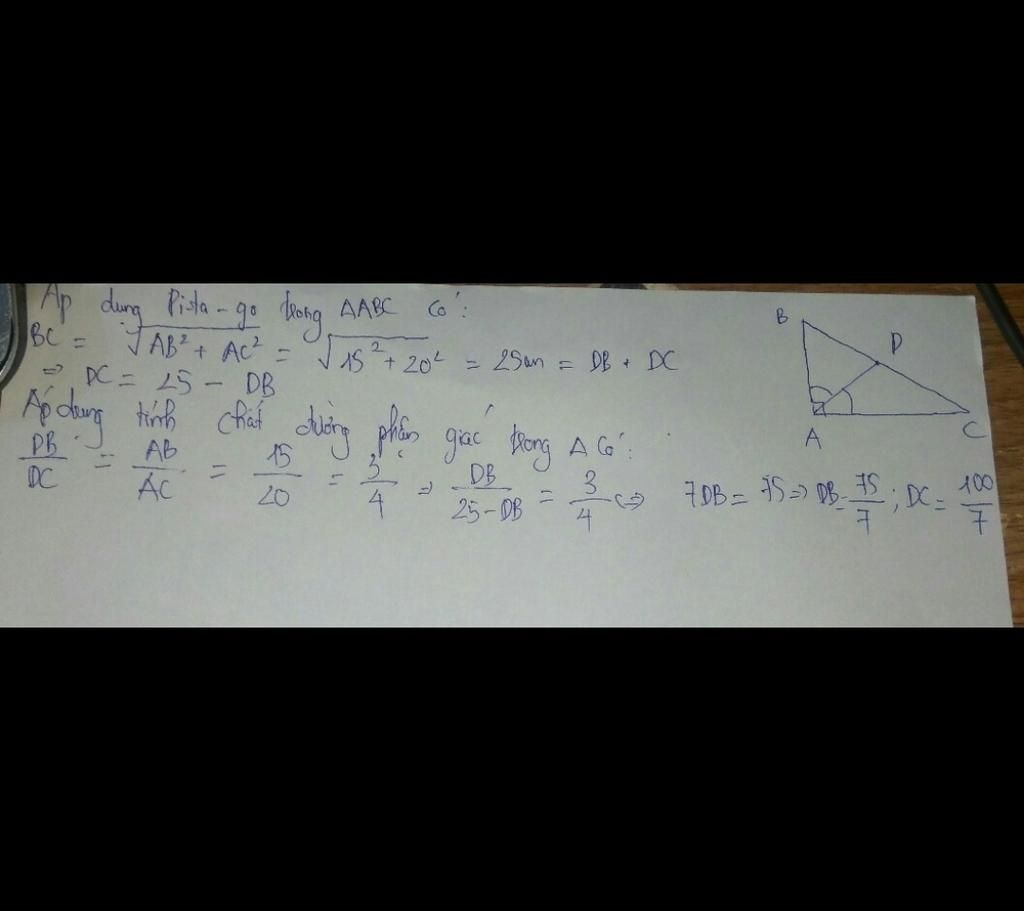 Áp dụng Pi-ta-go trong ΔABC có:
BC = √(AB² + AC²) = √(15² + 20²) = 25cm = DB + DC
⇒ DC = 25 - DB
Áp dụng tính chất đường phân giác trong Δ có:
DB/DC = AB/AC = 15/20 = 3/4 ⇒ DB/(25-DB) = 3/4 ⇔ 7DB = 75 ⇒ DB = 75/7; DC = 100/7
B
D
A
C